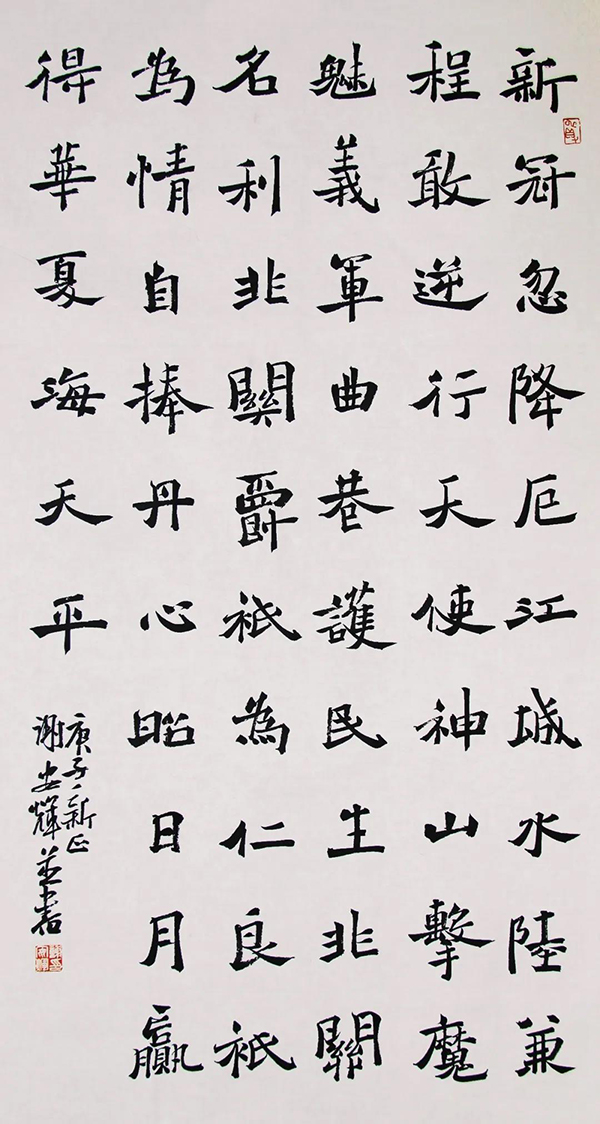 新冠忽降厄江城水陸兼
程敢逆行天使神山擊魔
魅義軍曲巷護民生非關
名利非關爵祇為仁良祇
為情自捧丹心昭日月贏
得華夏海天平
庚子新正
謝安輝並書